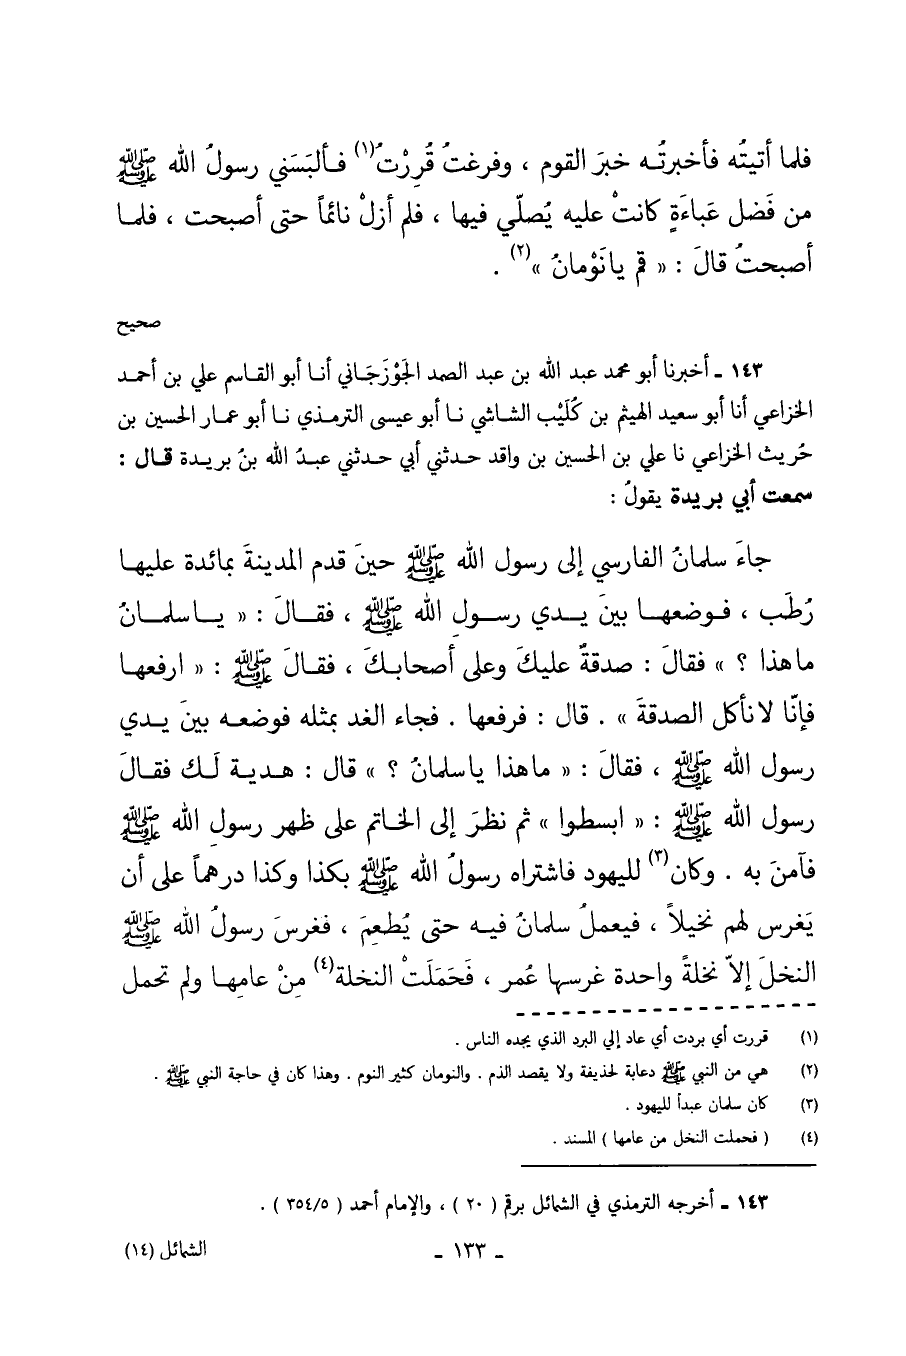 فلما أتيتُه فأخبرتُـه خبرَ القوم ، وفرغتُ قُرِرْتُ(١) فـألبَسَني رسولُ الله ﷺ
من فَضل عَباءَةٍ كانتْ عليه يُصلّي فيها ، فلم أزلْ نائماً حتى أصبحت ، فلمـا
أصبحتُ قالَ : « قم يانَوْمانُ »(٢) .
صحيح
١٤٣ ـ أخبرنا أبو محمد عبد الله بن عبد الصمد الجَوْزَجَـاني أنـا أبو القـاسم علي بن أحمـد
الخزاعي أنا أبو سعيد الهيثم بن كُلَيْب الشـاشي نـا أبو عيسى الترمـذي نـا أبو عمـار الحسين بن
حُريث الخزاعي نا علي بن الحسين بن واقد حـدثني أبي حـدثني عبـدُ الله بنُ بريـدة قـال :
سمعت أبي بريدة يقولُ :
جاءَ سلمانُ الفارسي إلى رسول الله ﷺ حينَ قدم المدينةَ بمائدة عليهـا
رُطَب ، فـوضعهـا بينَ يـدي رسـولِ الله ﷺ ، فقـالَ : « يـاسلمـانُ
ماهذا ؟ » فقالَ : صدقةٌ عليكَ وعلى أصحابـكَ ، فقـالَ ﷺ : « ارفعهـا
فإنّا لانأكل الصدقةَ » . قال : فرفعها . فجاء الغد بمثله فوضعـه بينَ يـدي
رسول الله ﷺ ، فقالَ : « ماهذا ياسلمانُ ؟ » قال : هـديـة لَـك فقـالَ
رسول الله ﷺ : « ابسطوا » ثم نظرَ إلى الخـاتم على ظهر رسولِ الله ﷺ
فآمنَ به . وكان(٣) لليهود فاشتراه رسولُ الله ﷺ بكذا وكذا درهماً على أن
يَغرس لهم نخيلاً ، فيعملُ سلمانُ فيـه حتى يُطعِمَ ، فغرسَ رسولُ الله ﷺ
النخلَ إلاّ نخلةً واحدة غرسها عُمر ، فَحَمَلَتْ النخلة(٤) مِنْ عامِهـا ولم تحمل
(١) قررت أي بردت أي عاد إلي البرد الذي يجده الناس .
(٢) هي من النبي ﷺ دعابة لحذيفة ولا يقصد الذم . والنومان كثير النوم . وهذا كان في حاجة النبي ﷺ .
(٣) كان سلمان عبداً لليهود .
(٤) ( فحملت النخل من عامها ) المسند .
١٤٣ ـ أخرجه الترمذي في الشمائل برقم ( ٢٠ ) ، والإمام أحمد ( ٣٥٤/٥ ) .
ـ ١٣٣ ـ الشمائل (١٤)